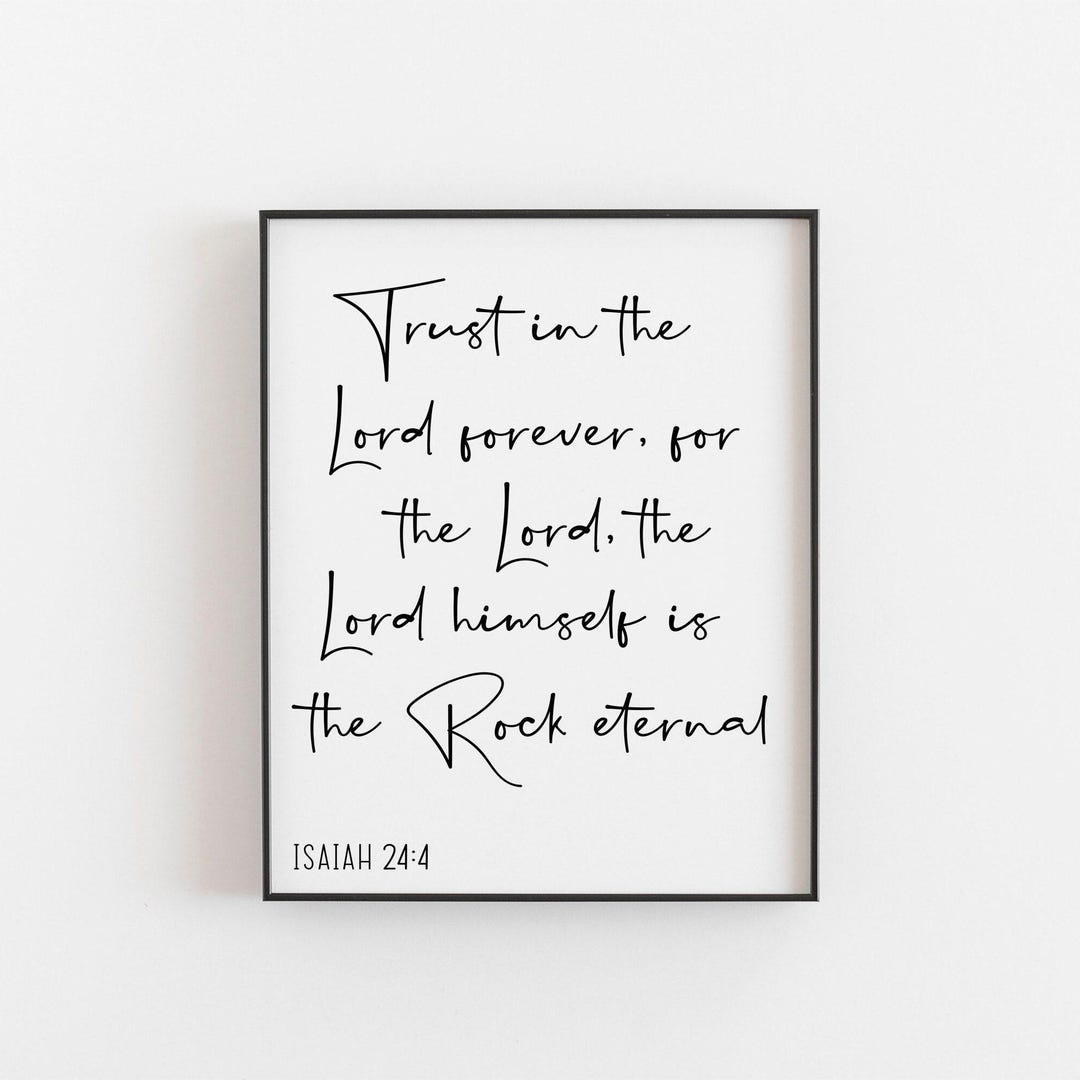 Trust in the
Lord forever, for
the Lord, the
Lord himself is
the Rock eternal
ISAIAH 24:4